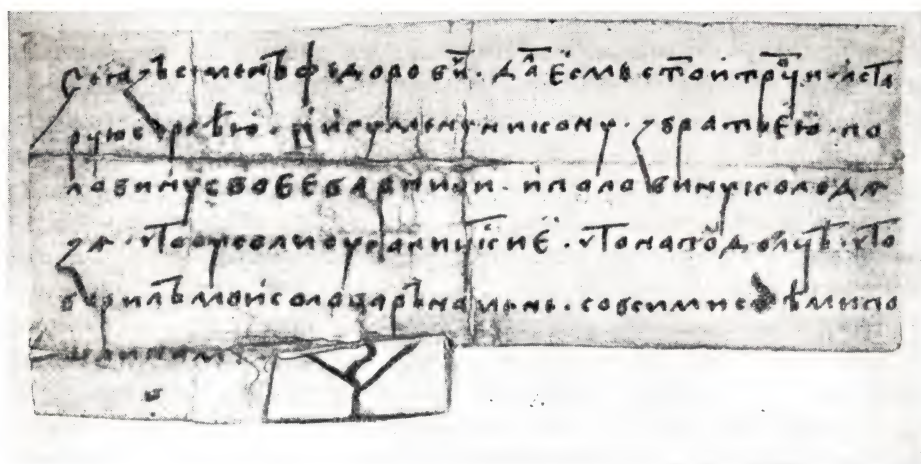 Се язъ семенъ федорович · дал есмь стои трци
игумену никону · з братьею · по
ловину свое варници · и половину колодя
зя · что у соли у галицкие · что на подолцѣ · что
варилъ мои соловаръ на мене · со всими с тѣми по
шлинами